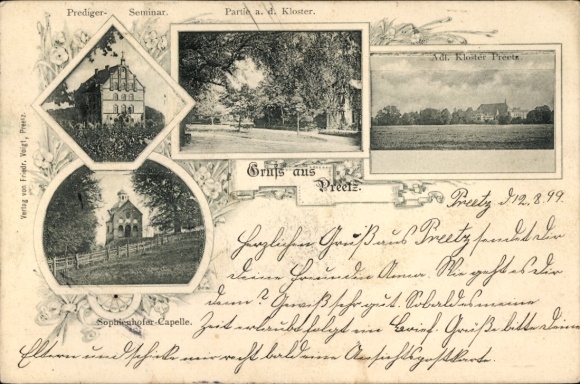 Prediger- Seminar.
Partie a. d. Kloster.
Adl. Kloster Preetz.
Verlag von Friedr. Voigt, Preetz.
Gruß aus
Preetz.
Sophienhofer Capelle.
Preetz d. 12.8.99.
Herzlichen Gruß aus Preetz sendet dir
deine Freundin Anna. Wie geht es dir
denn? Gewiß sehr gut. Sobald es meine
Zeit erlaubt folgt ein Brief. Grüße bitte deine
Eltern und schicke mir recht bald eine Ansichtspostkarte.